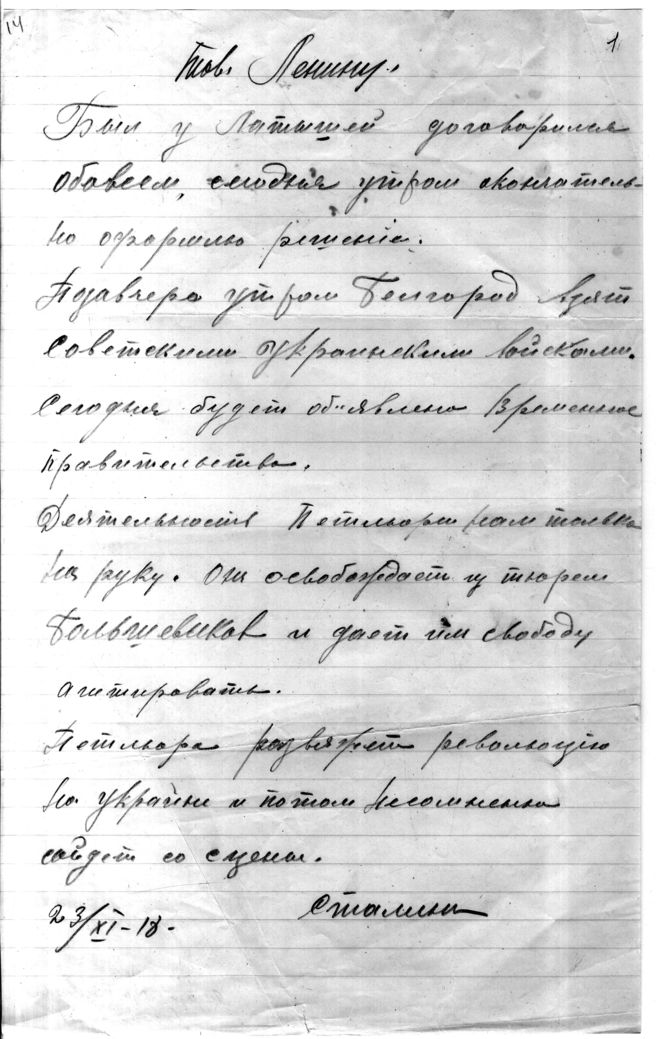 14
1
Тов. Ленину.
Был у Латышей договорился
обовсем, сегодня утром окончатель-
но оформлю решение.
Позавчера утром Белгород взят
Советскими Украинскими войсками.
Сегодня будет об"явлено Временное
правительство.
Деятельность Петлюры нам только
на руку. Он освобождает из тюрем
Большевиков и дает им свободу
агитировать.
Петлюра развяжет революцію
на Украйне и потом несомненно
сойдет со сцены.
23/XI-18. Сталин